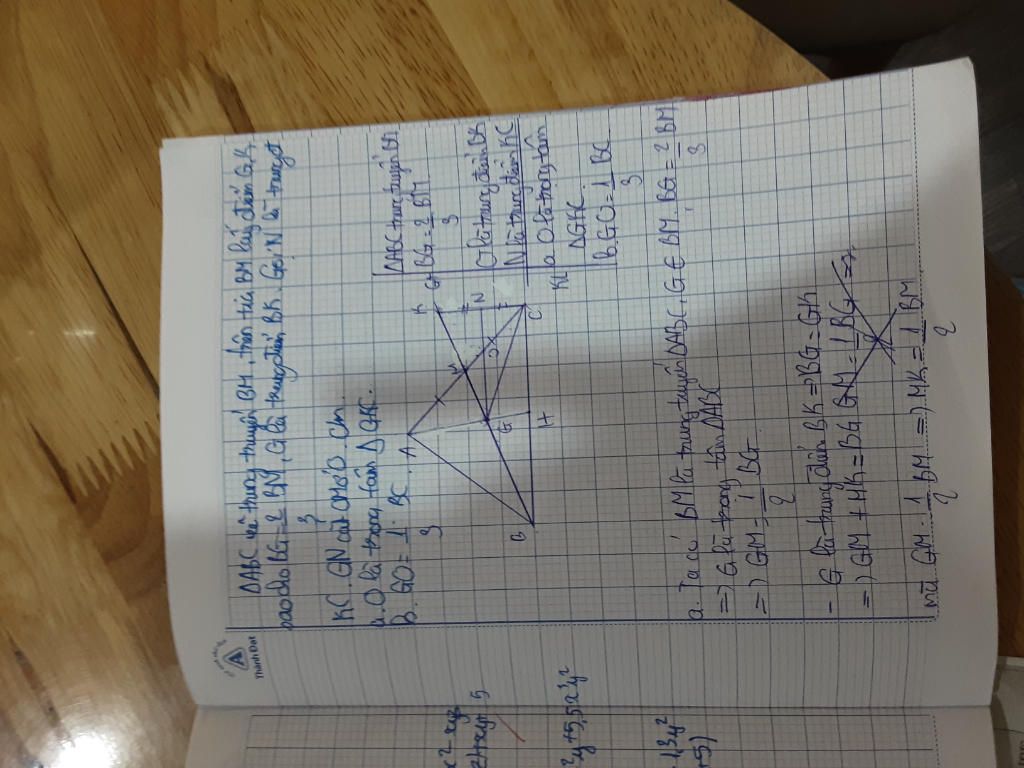 Thành Đạt
ΔABC vẽ trung tuyến BM trên tia BM lấy điểm G, K
sao do BG = 2/3 BM, G là trung điểm BK. Gọi N là trung
KC. GN cắt CM ở O. Cm.
a. O là trọng tâm Δ GKC.
b. GO = 1/3 . BC.
ΔABC trung tuyến BM
BG = 2/3 BM
G là trung điểm BK
N là trung điểm KC
KL
a. O là trọng tâm
ΔGKC.
b. GO = 1/3 BC
A
B
C
K
M
N
O
G
H
a. Ta có BM là trung tuyến ΔABC, G ∈ BM, BG = 2/3 BM
=> G là trọng tâm ΔABC
=> GM = 1/2 BG.
- G là trung điểm BK => BG = GK
=> GM + MK = BG
mà GM = 1/2 BM => MK = 1/2 BM